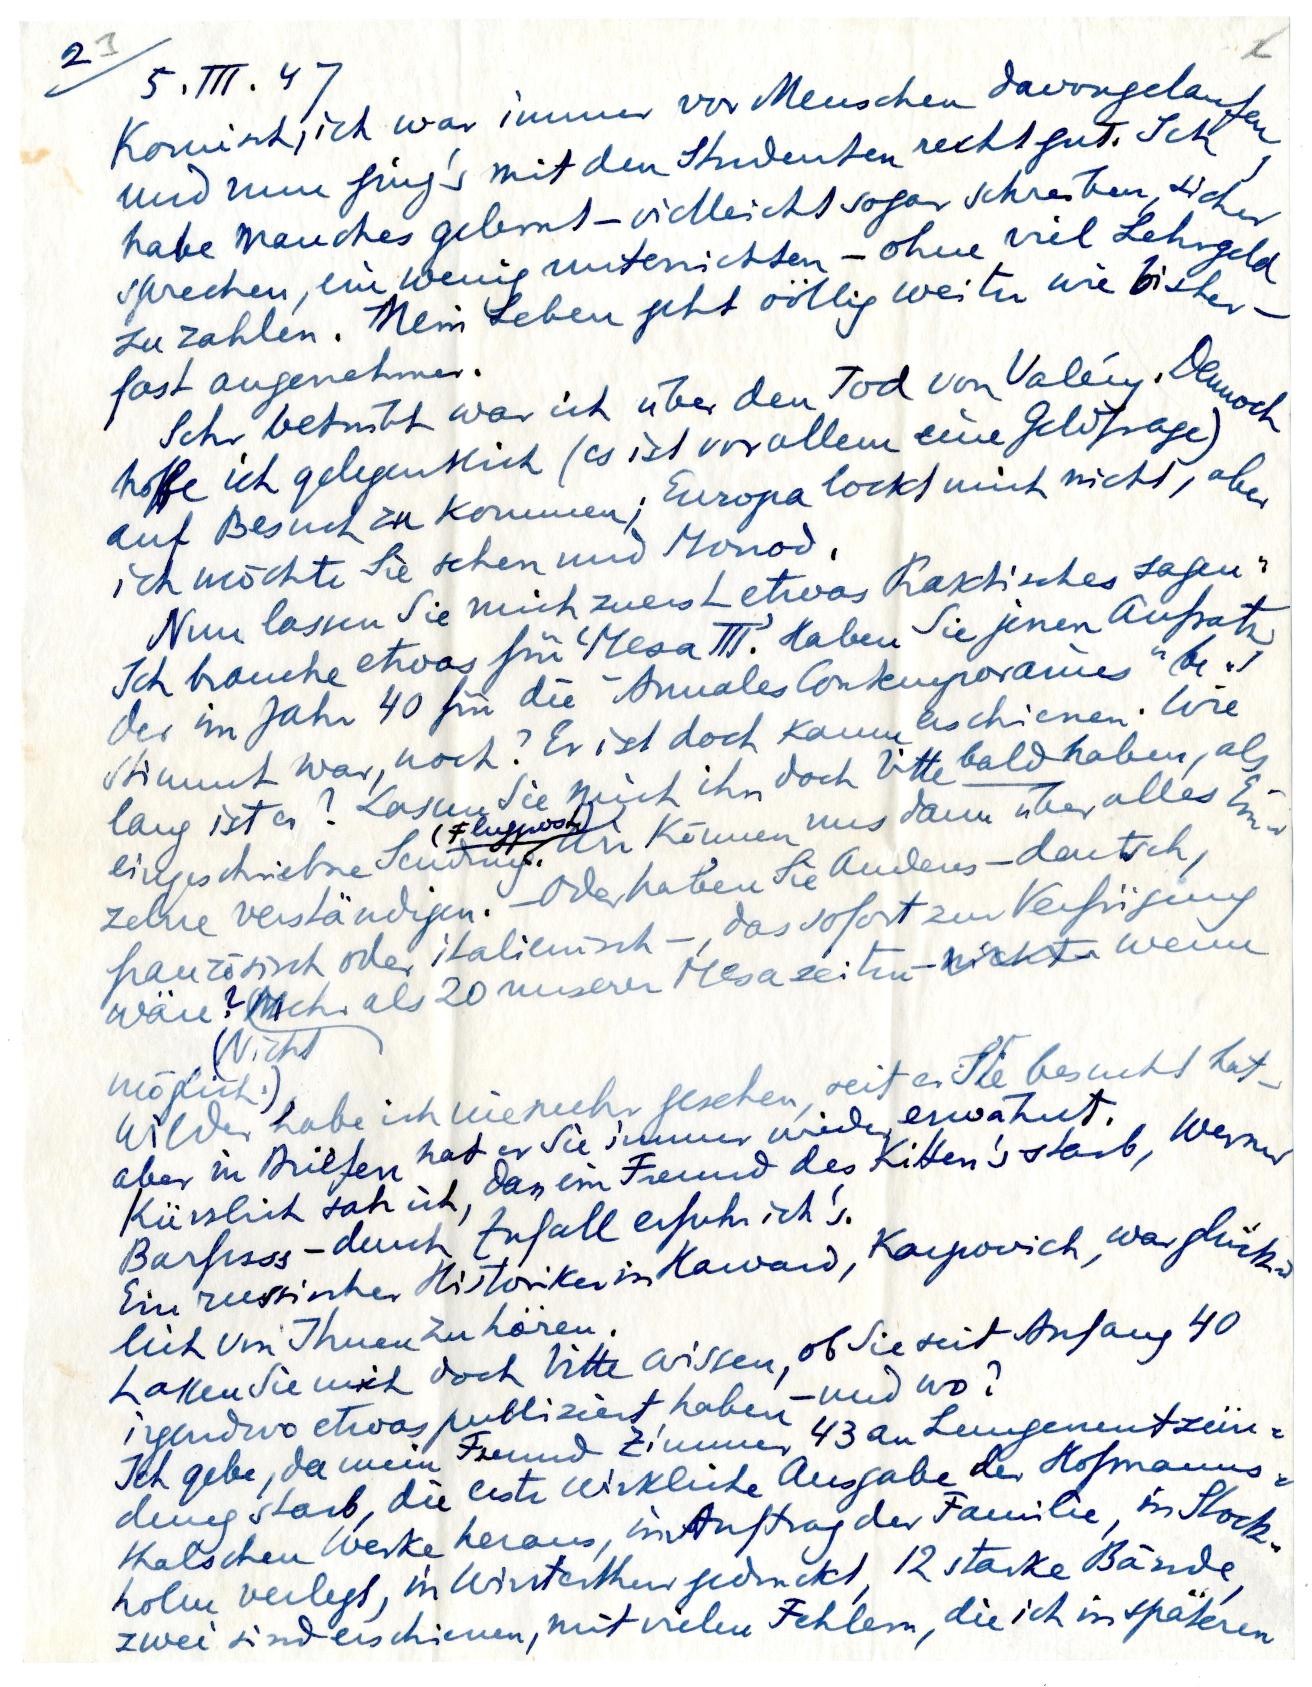 23
5.III.47
Komisch, ich war immer vor Menschen davongelaufen,
und nun ging's mit den Studenten recht gut. Ich
habe manches gelernt – vielleicht sogar schreiben, sicher
sprechen, ein wenig unterrichten – ohne viel Lehrgeld
zu zahlen. Mein Leben geht völlig weiter wie bisher –
fast angenehmer.
Sehr betrübt war ich über den Tod von Valéry. Dennoch
hoffe ich gelegentlich (es ist vor allem eine Geldfrage)
auf Besuch zu kommen; Europa lockt mich nicht, aber
ich möchte Sie sehen und Monod.
Nun lassen Sie mich zuerst etwas Praktisches sagen:
Ich brauche etwas für 'Mesa III'. Haben Sie jenen Aufsatz
der im Jahr 40 für die "Annales Contemporaines" be=
stimmt war, noch? Er ist doch kaum erschienen. Wie
lang ist er? Lassen Sie mich ihn doch bitte bald haben, als
eingeschriebne Sendung. (Flugpost) Wir können uns dann über alles Ein=
zelne verständigen. – Oder haben Sie Anderes – deutsch,
französisch oder italienisch –, das sofort zur Verfügung
wäre? (Mehr als 20 unserer Mesaseiten – nicht – wenn
(Nicht
möglich.)
Wilder habe ich nie mehr gesehen, seit er Sie besucht hat –
aber in Briefen hat er Sie immer wieder erwähnt.
Kürzlich sah ich, dass ein Freund des Kitten's starb, Werner
Barfuss – durch Zufall erfuhr ich's.
Ein russischer Historiker in Harward, Karpovich, war glück=
lich von Ihnen zu hören.
Lassen Sie mich doch bitte wissen, ob Sie seit Anfang 40
irgendwo etwas publiziert haben – und wo?
Ich gebe, da mein Freund Zimmer 43 an Lungenentzün=
dung starb, die erste wirkliche Ausgabe der Hofmanns=
thalschen Werke heraus, im Auftrag der Familie, in Stock=
holm verlegt, in Winterthur gedruckt, 12 starke Bände,
zwei sind erschienen, mit vielen Fehlern, die ich in späteren